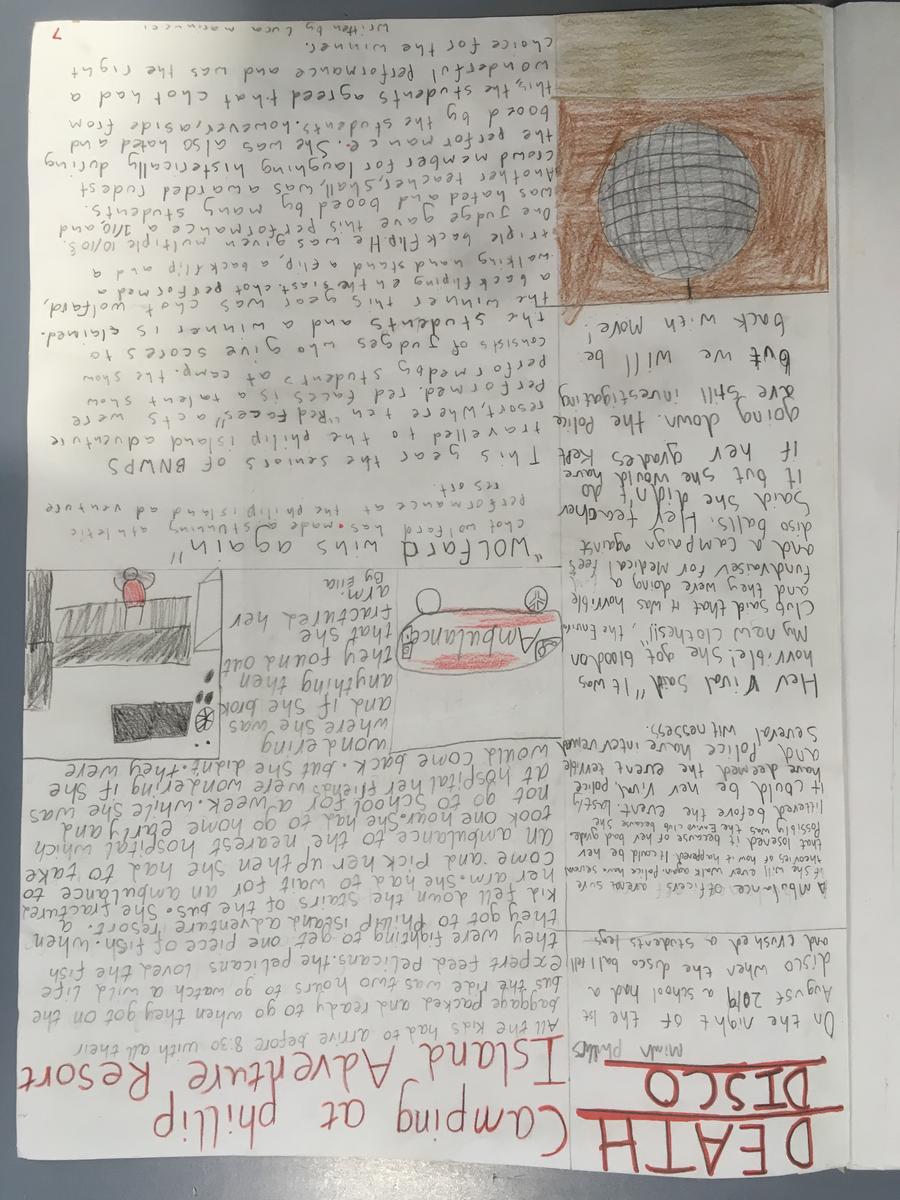 DEATH
DISCO
Minh Phillips
On the night of the 1st
August 2019 a school had a
disco when the disco ball fell
and crushed a students legs
Ambalance officers arent sure
if she will ever walk again Police have several
theories of how it happend. It could be her
that losened it because of her bad grade
Possibly was the Enviro club because she
littered before the event. Lastly
it could be her rival. police
have deemed the event terrible
and Police have interviewed
several witnesses.
Her rival said "It was
horrible! She got blood on
My new clothes!!", the Enviro
Club said that it was horrible
and they were doing a
fundraiser for Medical fee's
and a campaign against
diso balls. Her teacher
said she didn't do
it but she would have
If her grades kept
going down. the Police
are still investigating
but we will be
back with more!
Camping at phillip
Island Adventure Resort
All the kids had to arrive before 8:30 with all their
baggage packed and ready to go when they got on the
bus the ride was two hours to go watch a wild life
expert feed Pelicans. the pelicans loved the fish
they were fighting to get one piece of fish. when
they got to Phillip island adventure resort. a
kid fell down the stairs of the bus. She fractured
her arm. She had to wait for an ambulance to
come and pick her up then she had to take
an ambulance to the nearest hospital which
took one hour. She had to go home early and
not go to school for a week. while she was
at hospital her friends were wondering if she
would come back. but she didn't. they were
wondering
where she was
and if she brok
anything then
they found out
that she
fractured her
arm.
By Ella
Ambulance
"WOLFARD wins again"
chot wolfard has made a stuning athletic
performance at the philip island ad venture
resort.
This year the seniors of BNWPS
travelled to the philip island adventure
resort, where ten "Red Faces" acts were
performed. red faces is a talent show
performed by students at camp. the show
consists of judges who give scores to
the students and a winner is claimed.
the winner this year was chot wolfard,
a backfliping enthusiast. chot performed a
walking hand stand a flip, a backflip and a
triple backflip. He was given multiple 10/10s.
One judge gave this performance a 1/10, and
was hated and booed by many students.
Another teacher, shall, was awarded rudest
crowd member for laughing histerically during
the performance. She was also hated and
booed by the students. however, aside from
this, the students agreed that chot had a
wonderful performance and was the right
choice for the winner.
Written by Luca marinucci
7